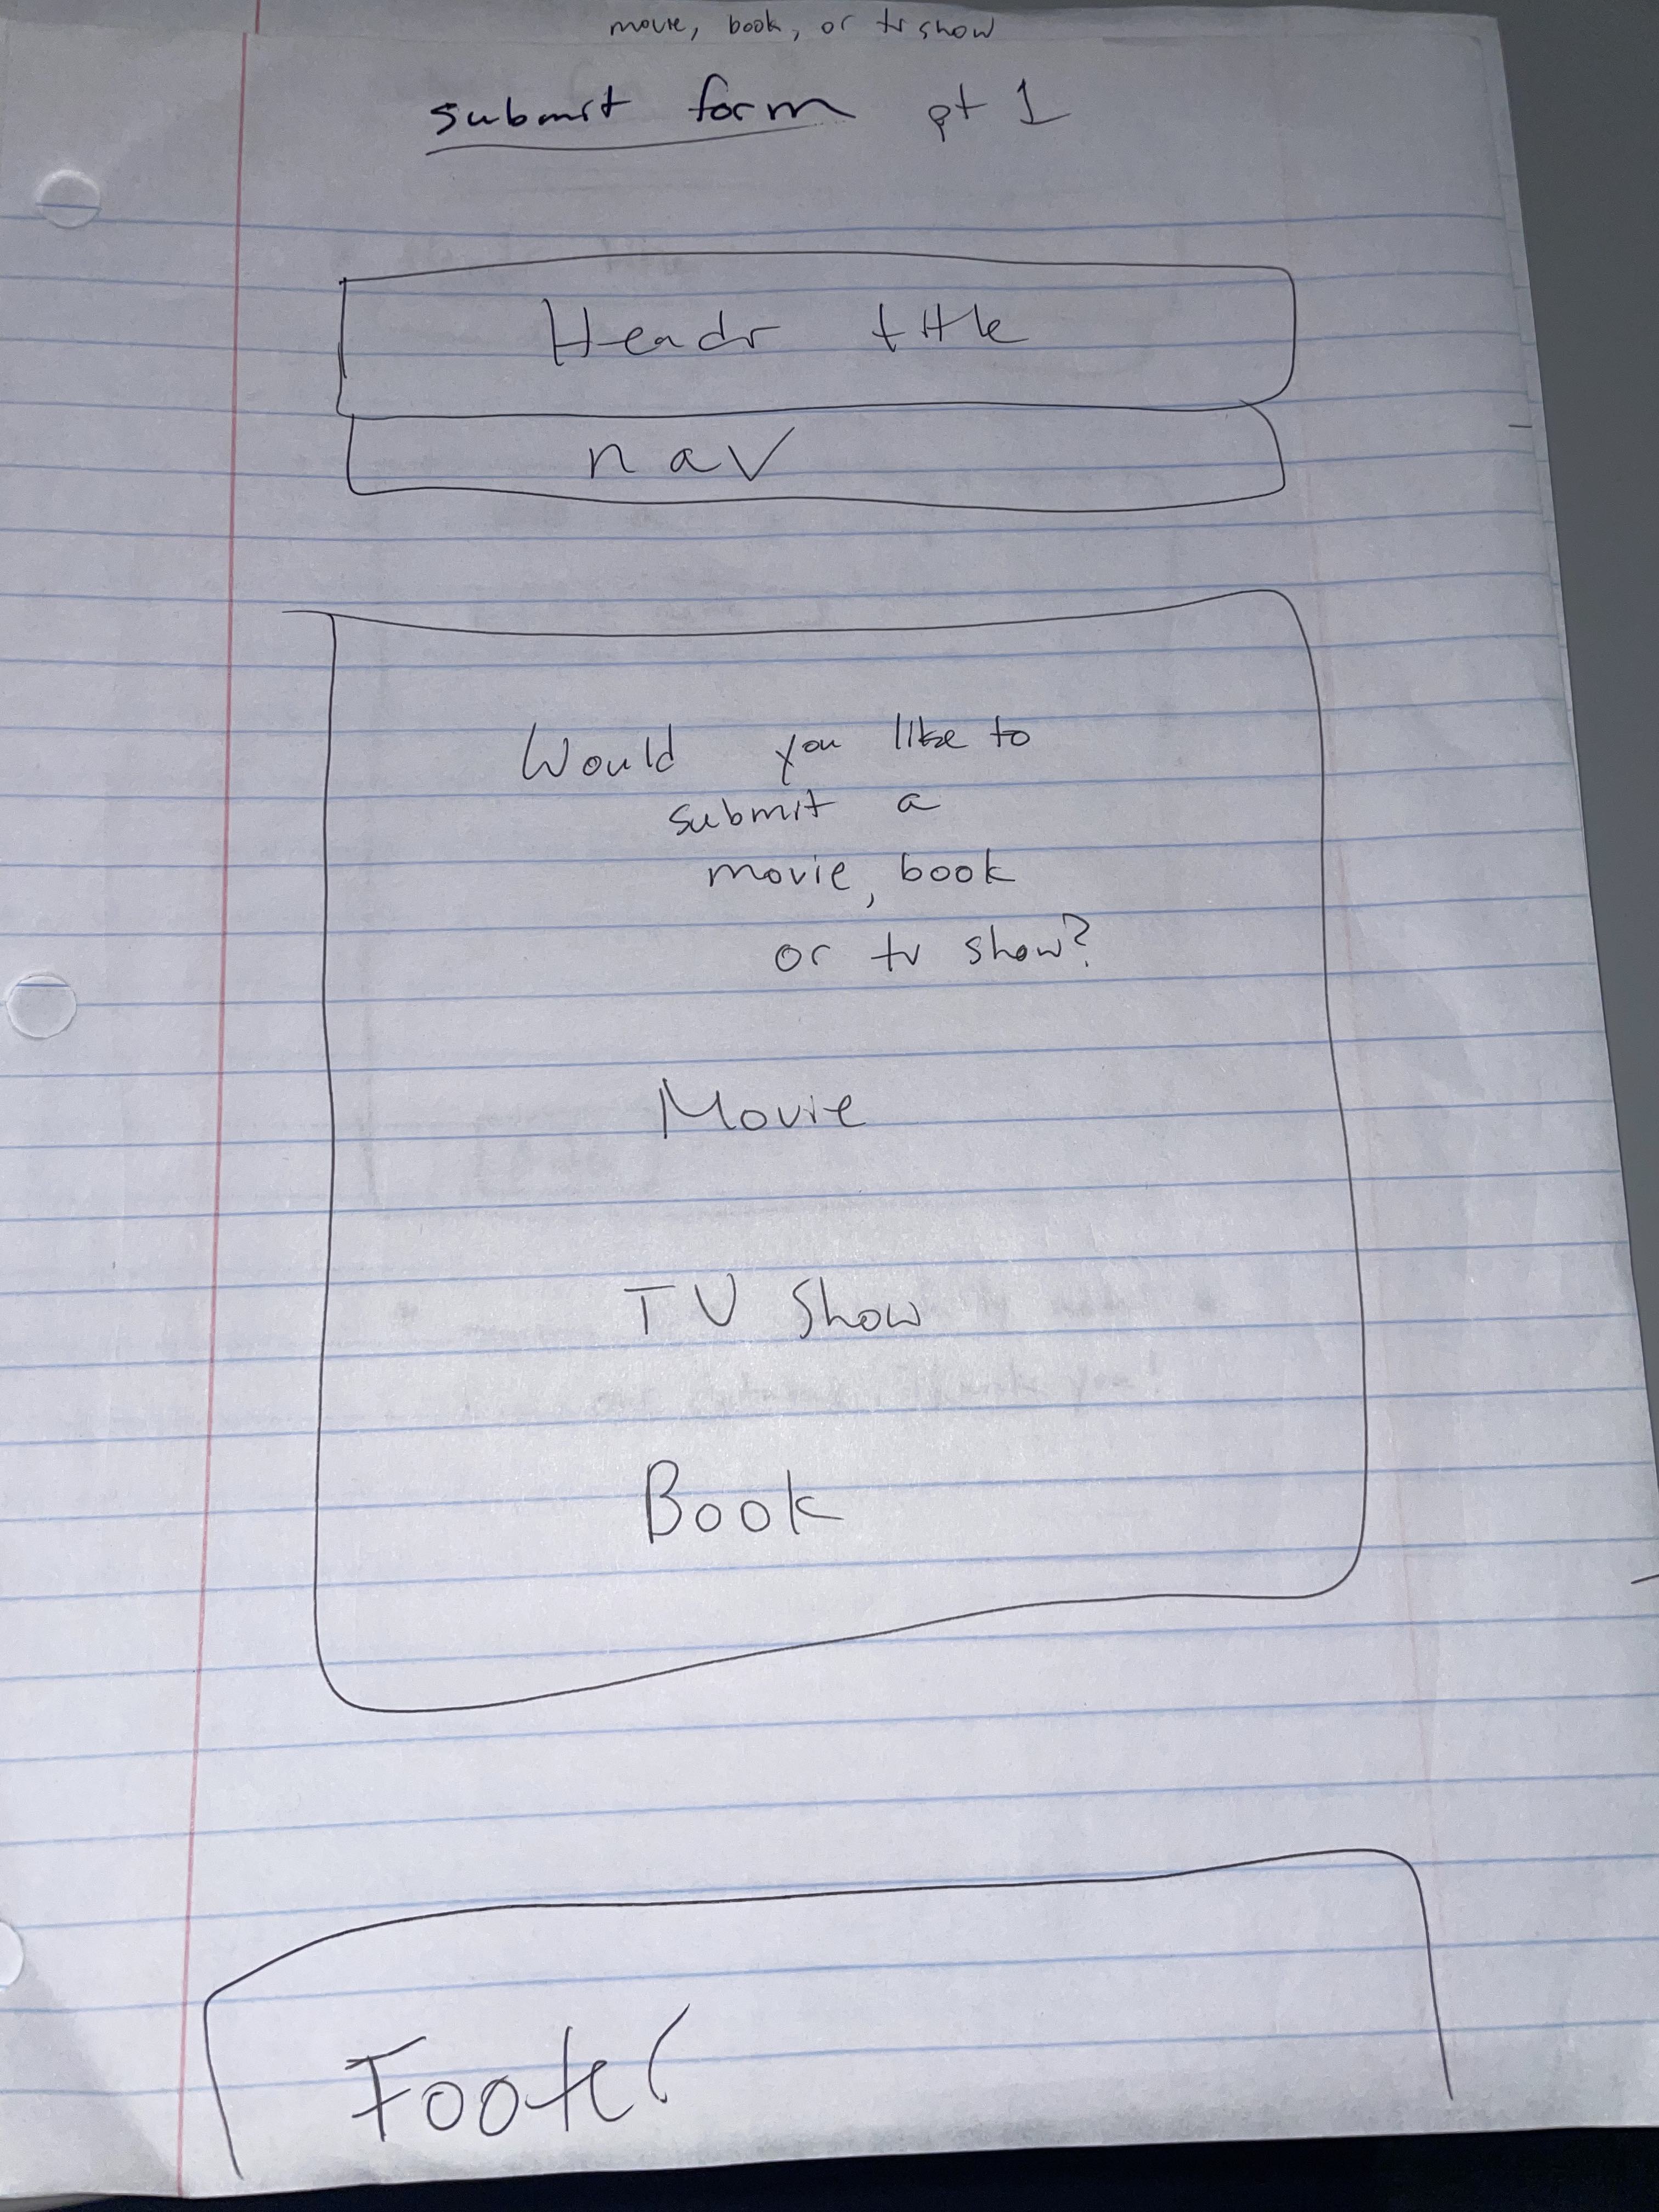 movie, book, or tv show
submit form pt 1
Header title
nav
Would you like to
submit a
movie, book
or tv show?
Movie
TV Show
Book
Footer